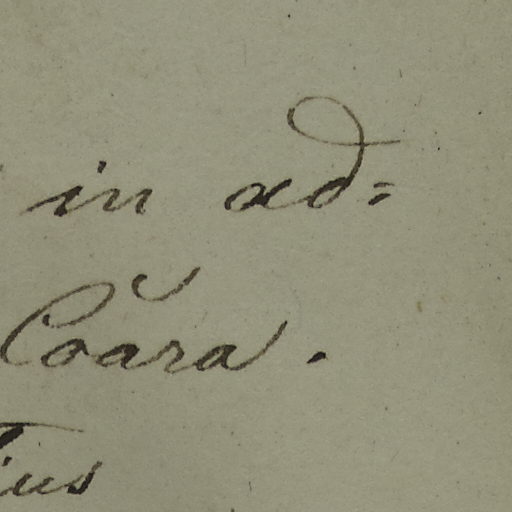 in ad=
Coăra.
ius